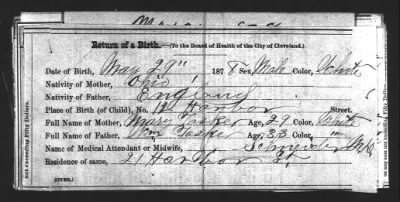 Return of a Birth.—(To the Board of Health of the City of Cleveland.)
Date of Birth, May 29" 1878 Sex, Male Color, White
Nativity of Mother, Ohio
Nativity of Father, England
Place of Birth (of Child), No. 12 Harbor Street.
Full Name of Mother, Mary Age, 29 Color, White
Full Name of Father, Wm Age, 33 Color, "
Name of Medical Attendant or Midwife,
Residence of same, 21 Harbor St
(OVER.)
not exceeding Fifty Dollars.